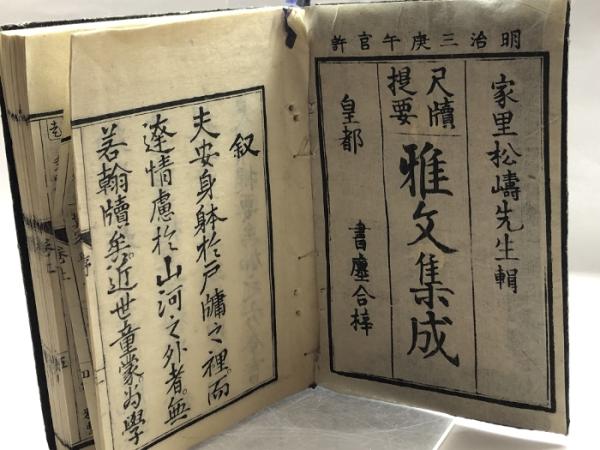 明治三庚午官許
家里松嶹先生輯
尺牘提要
雅文集成
皇都 書廛合梓
叙
夫安身躰於戸牖之裡而
達情慮於山河之外者無
若翰牘矣近世童蒙為學